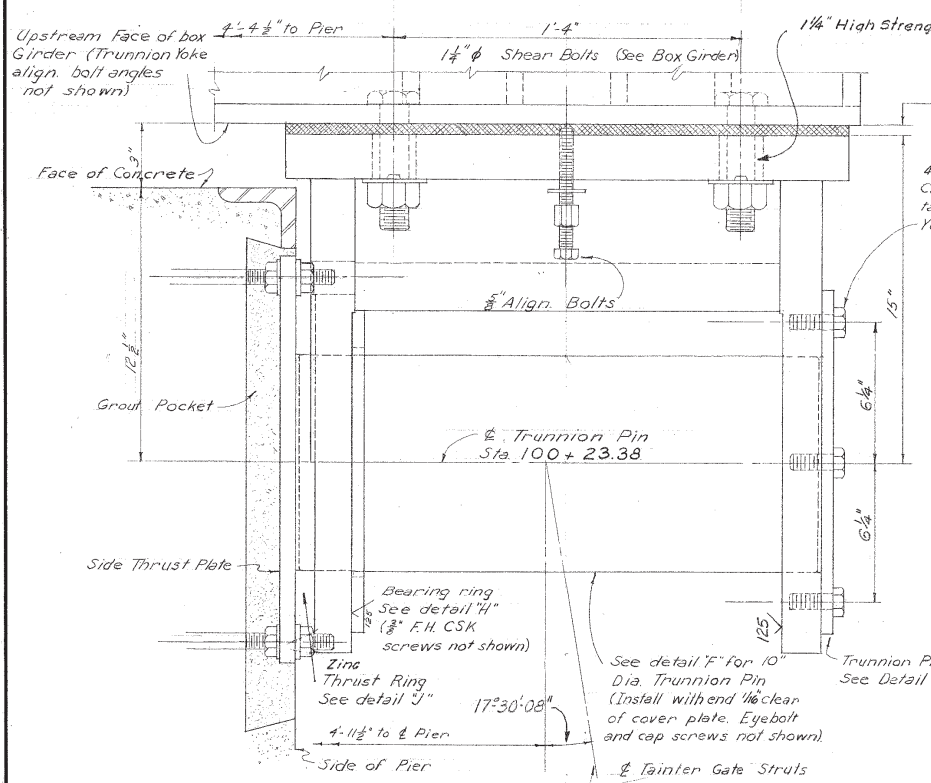 Upstream Face of box
Girder (Trunnion Yoke
align. bolt angles
not shown)
4'-4 1/2" to Pier
1'-4"
1 1/4" High Streng
1 1/4" φ Shear Bolts (See Box Girder)
3"
Face of Concrete
5/8" Align. Bolts
15"
12 1/2"
Grout Pocket
6 1/4"
℄ Trunnion Pin
Sta. 100 + 23.38
6 1/4"
Side Thrust Plate
Bearing ring
See detail "H"
F.H. CSK
screws not shown)
125
125
Zinc
Thrust Ring
See detail "J"
17°30'-08"
See detail "F" for 10"
Dia. Trunnion Pin
(Install with end 1/16" clear
of cover plate. Eyebolt
and cap screws not shown).
Trunnion P
See Detail
4'-11 1/2" to ℄ Pier
Side of Pier
℄ Tainter Gate Struts